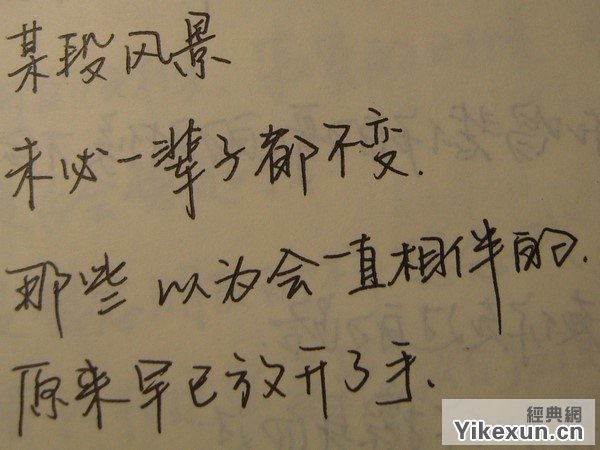 某段风景
未必一辈子都不变.
那些以为会一直相伴的.
原来早已放开了手.
經典網
Yikexun.cn